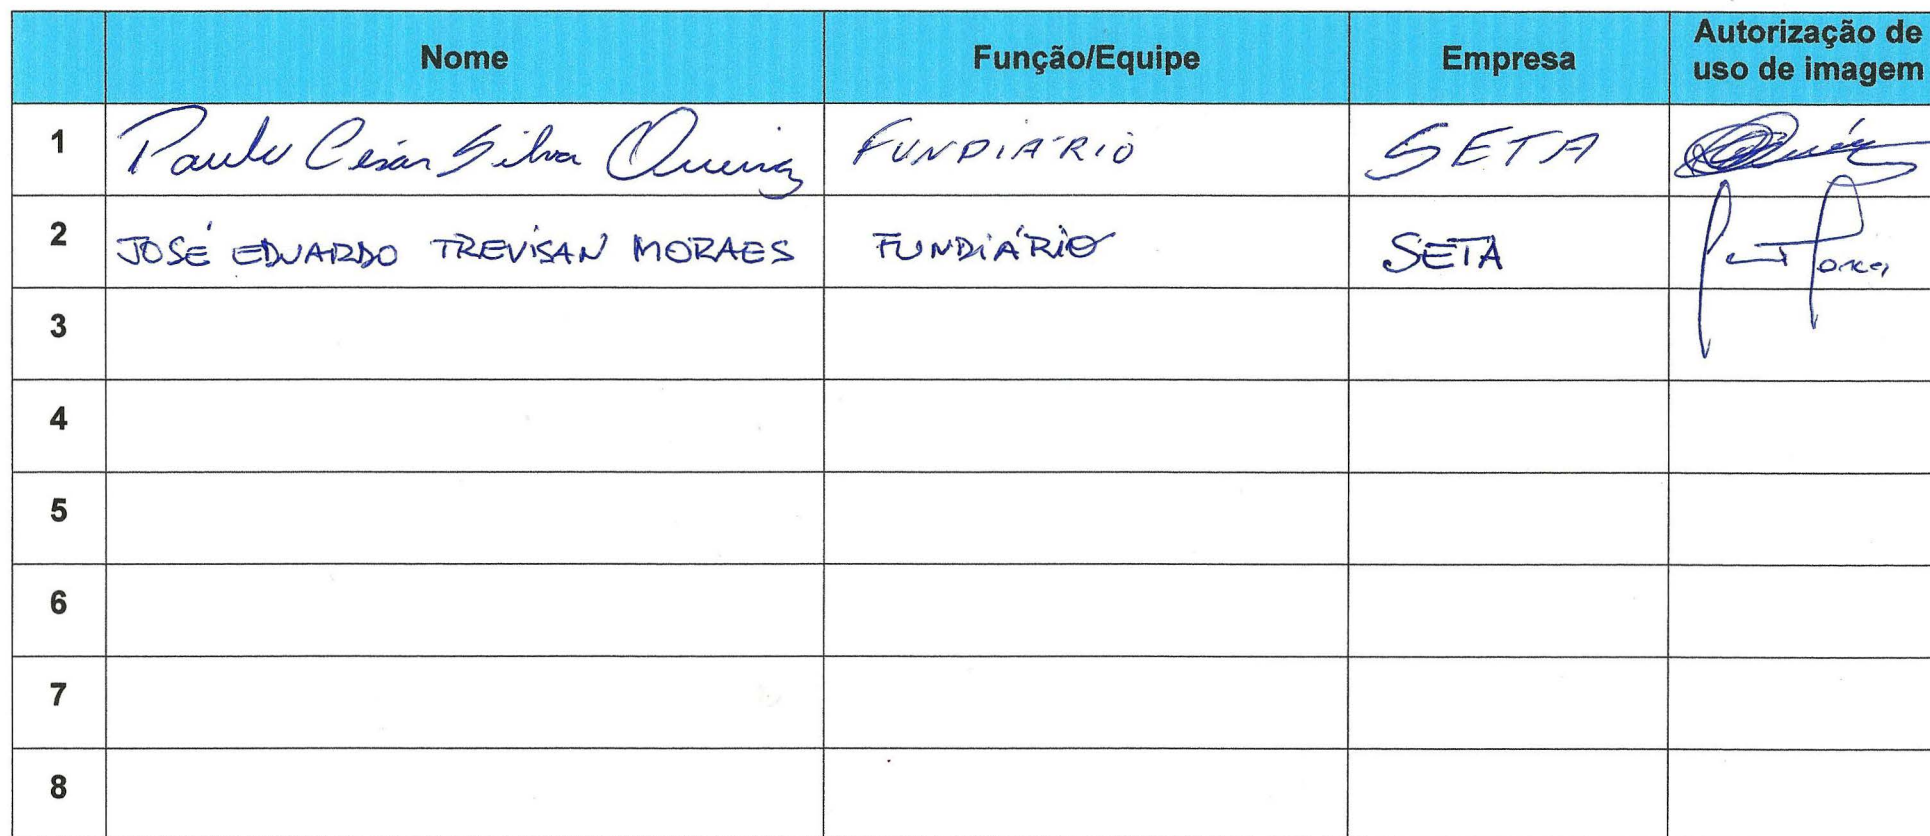 Nome Função/Equipe Empresa Autorização de uso de imagem
1 Paulo César Silva Queiroz FUNDIÁRIO SETA
2 JOSÉ EDUARDO TREVISAN MORAES FUNDIÁRIO SETA
3
4
5
6
7
8